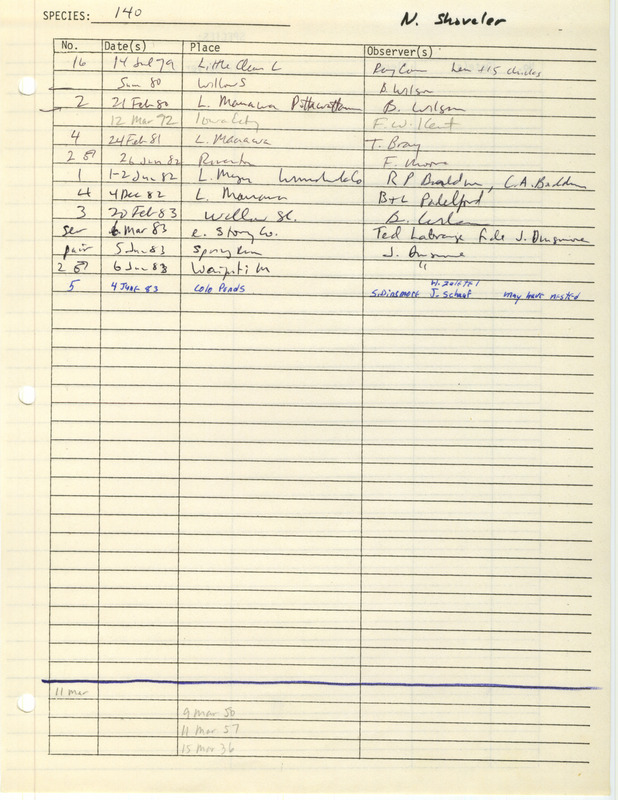 SPECIES: 140 N. Shoveler
No. Date(s) Place Observer(s)
16 14 Jul 79 Little Clear L Ray hen + 15 chicks
Sum 80 Willow S B Wilson
2 21 Feb 80 L. Manawa Pottawattam B. Wilson
12 Mar 72 Iowa City F.W. Kent
4 24 Feb 81 L. Manawa T. Bray
2 26 Jun 82 Riverton F. Moore
1 1-2 Jun 82 L. R P , C.A.
4 4 Dec 82 L. Manawa B+L Padelford
3 20 Feb 83 Willow Sl. B.
sev 6 Mar 83 e. Story Co. Ted fide J. Dinsmore
pair 5 Jun 83 Spring Run J. Dinsmore
2 6 Jun 83 "
5 4 June 83 Colo Ponds S. Dinsmore J. Schaaf may have nested
11 Mar
9 Mar 50
11 Mar 57
15 Mar 36